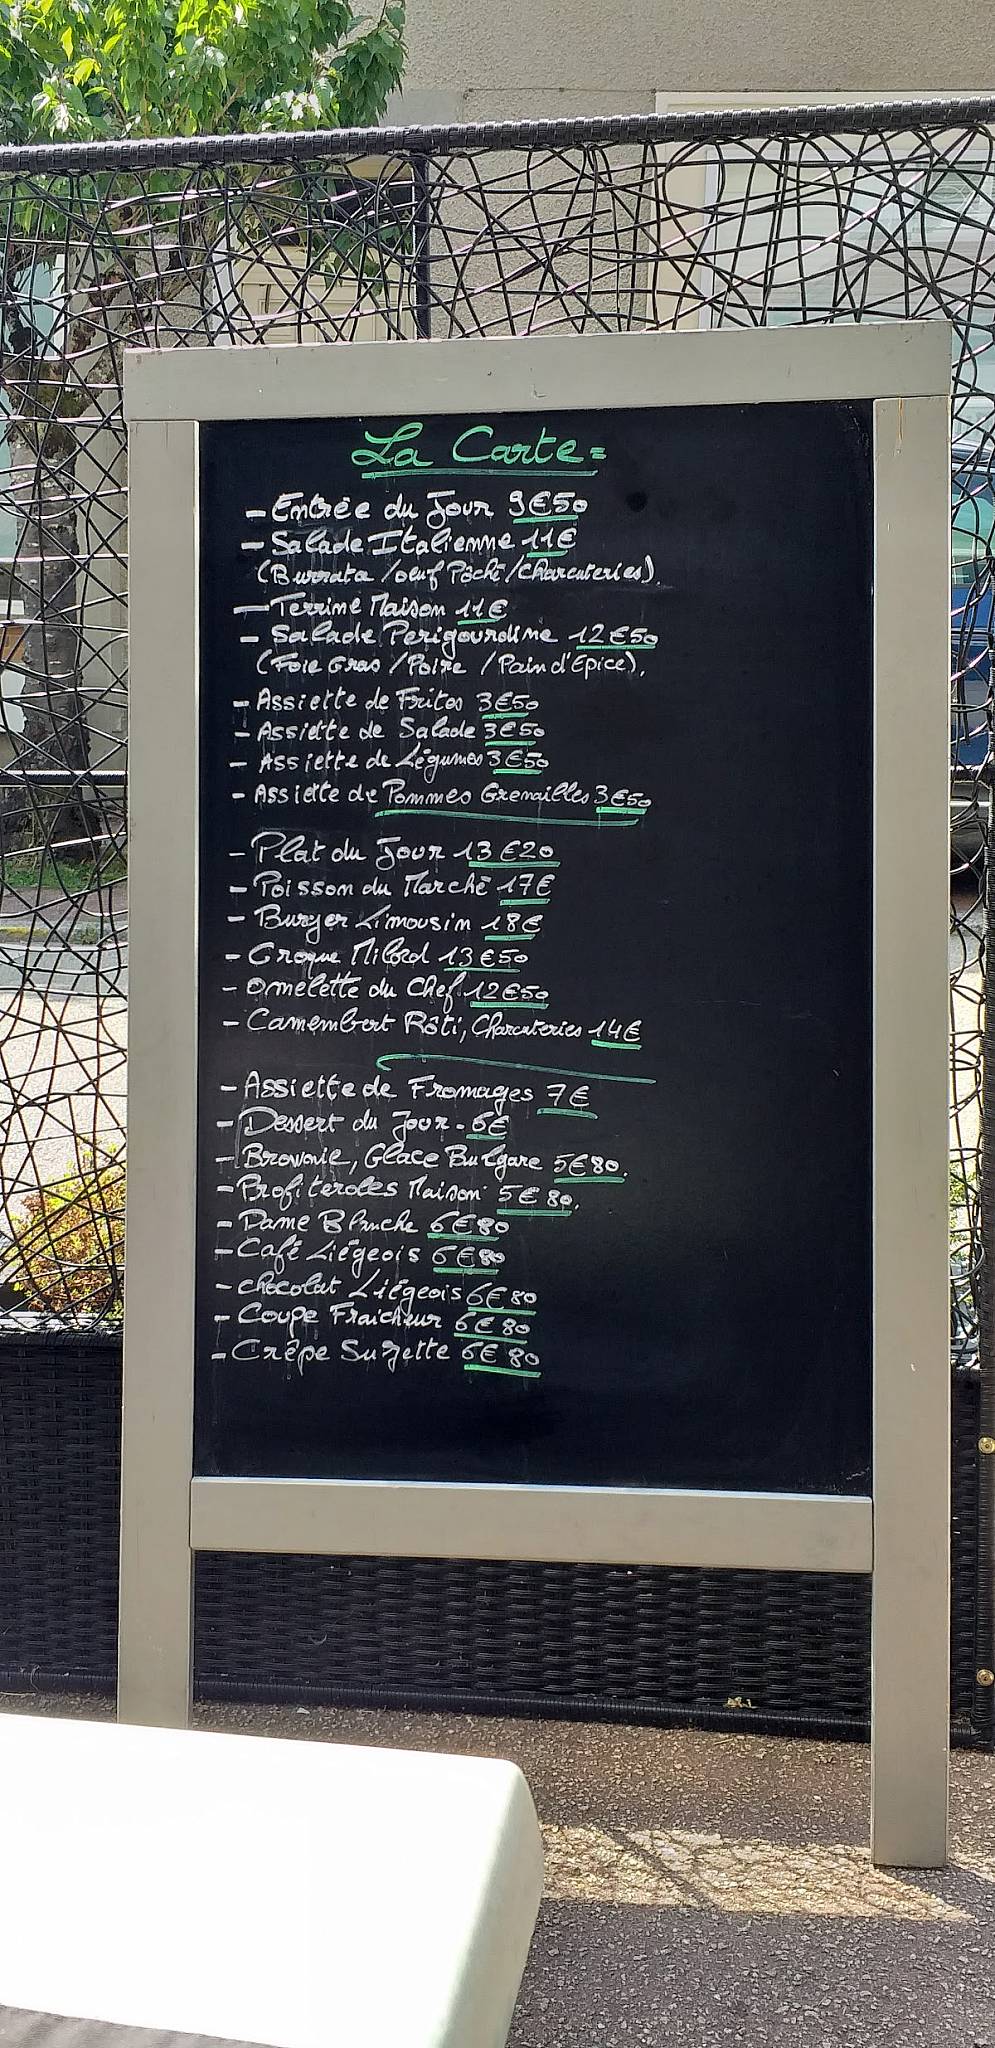 La Carte=
- Entrée du Jour 9€50
- Salade Italienne 11€
(Burrata /oeuf Pôché/Charcuteries).
- Terrine Maison 11€
- Salade Perigourdine 12€50
(Foie Gras /Poire /Pain d'Epice).
- Assiette de Frites 3€50
- Assiette de Salade 3€50
- Assiette de Légumes 3€50
- Assiette de Pommes Grenailles 3€50
- Plat du Jour 13€20
- Poisson du Marché 17€
- Burger Limousin 18€
- Croque Milord 13€50
- Omelette du Chef 12€50
- Camembert Rôti, Charcuteries 14€
- Assiette de Fromages 7€
- Dessert du Jour - 6€
- Brownie, Glace Bulgare 5€80.
- Profiteroles Maison 5€80.
- Dame Blanche 6€80
- Café Liégeois 6€80
- chocolat Liégeois 6€80
- Coupe Fraicheur 6€80
- Crêpe Suzette 6€80